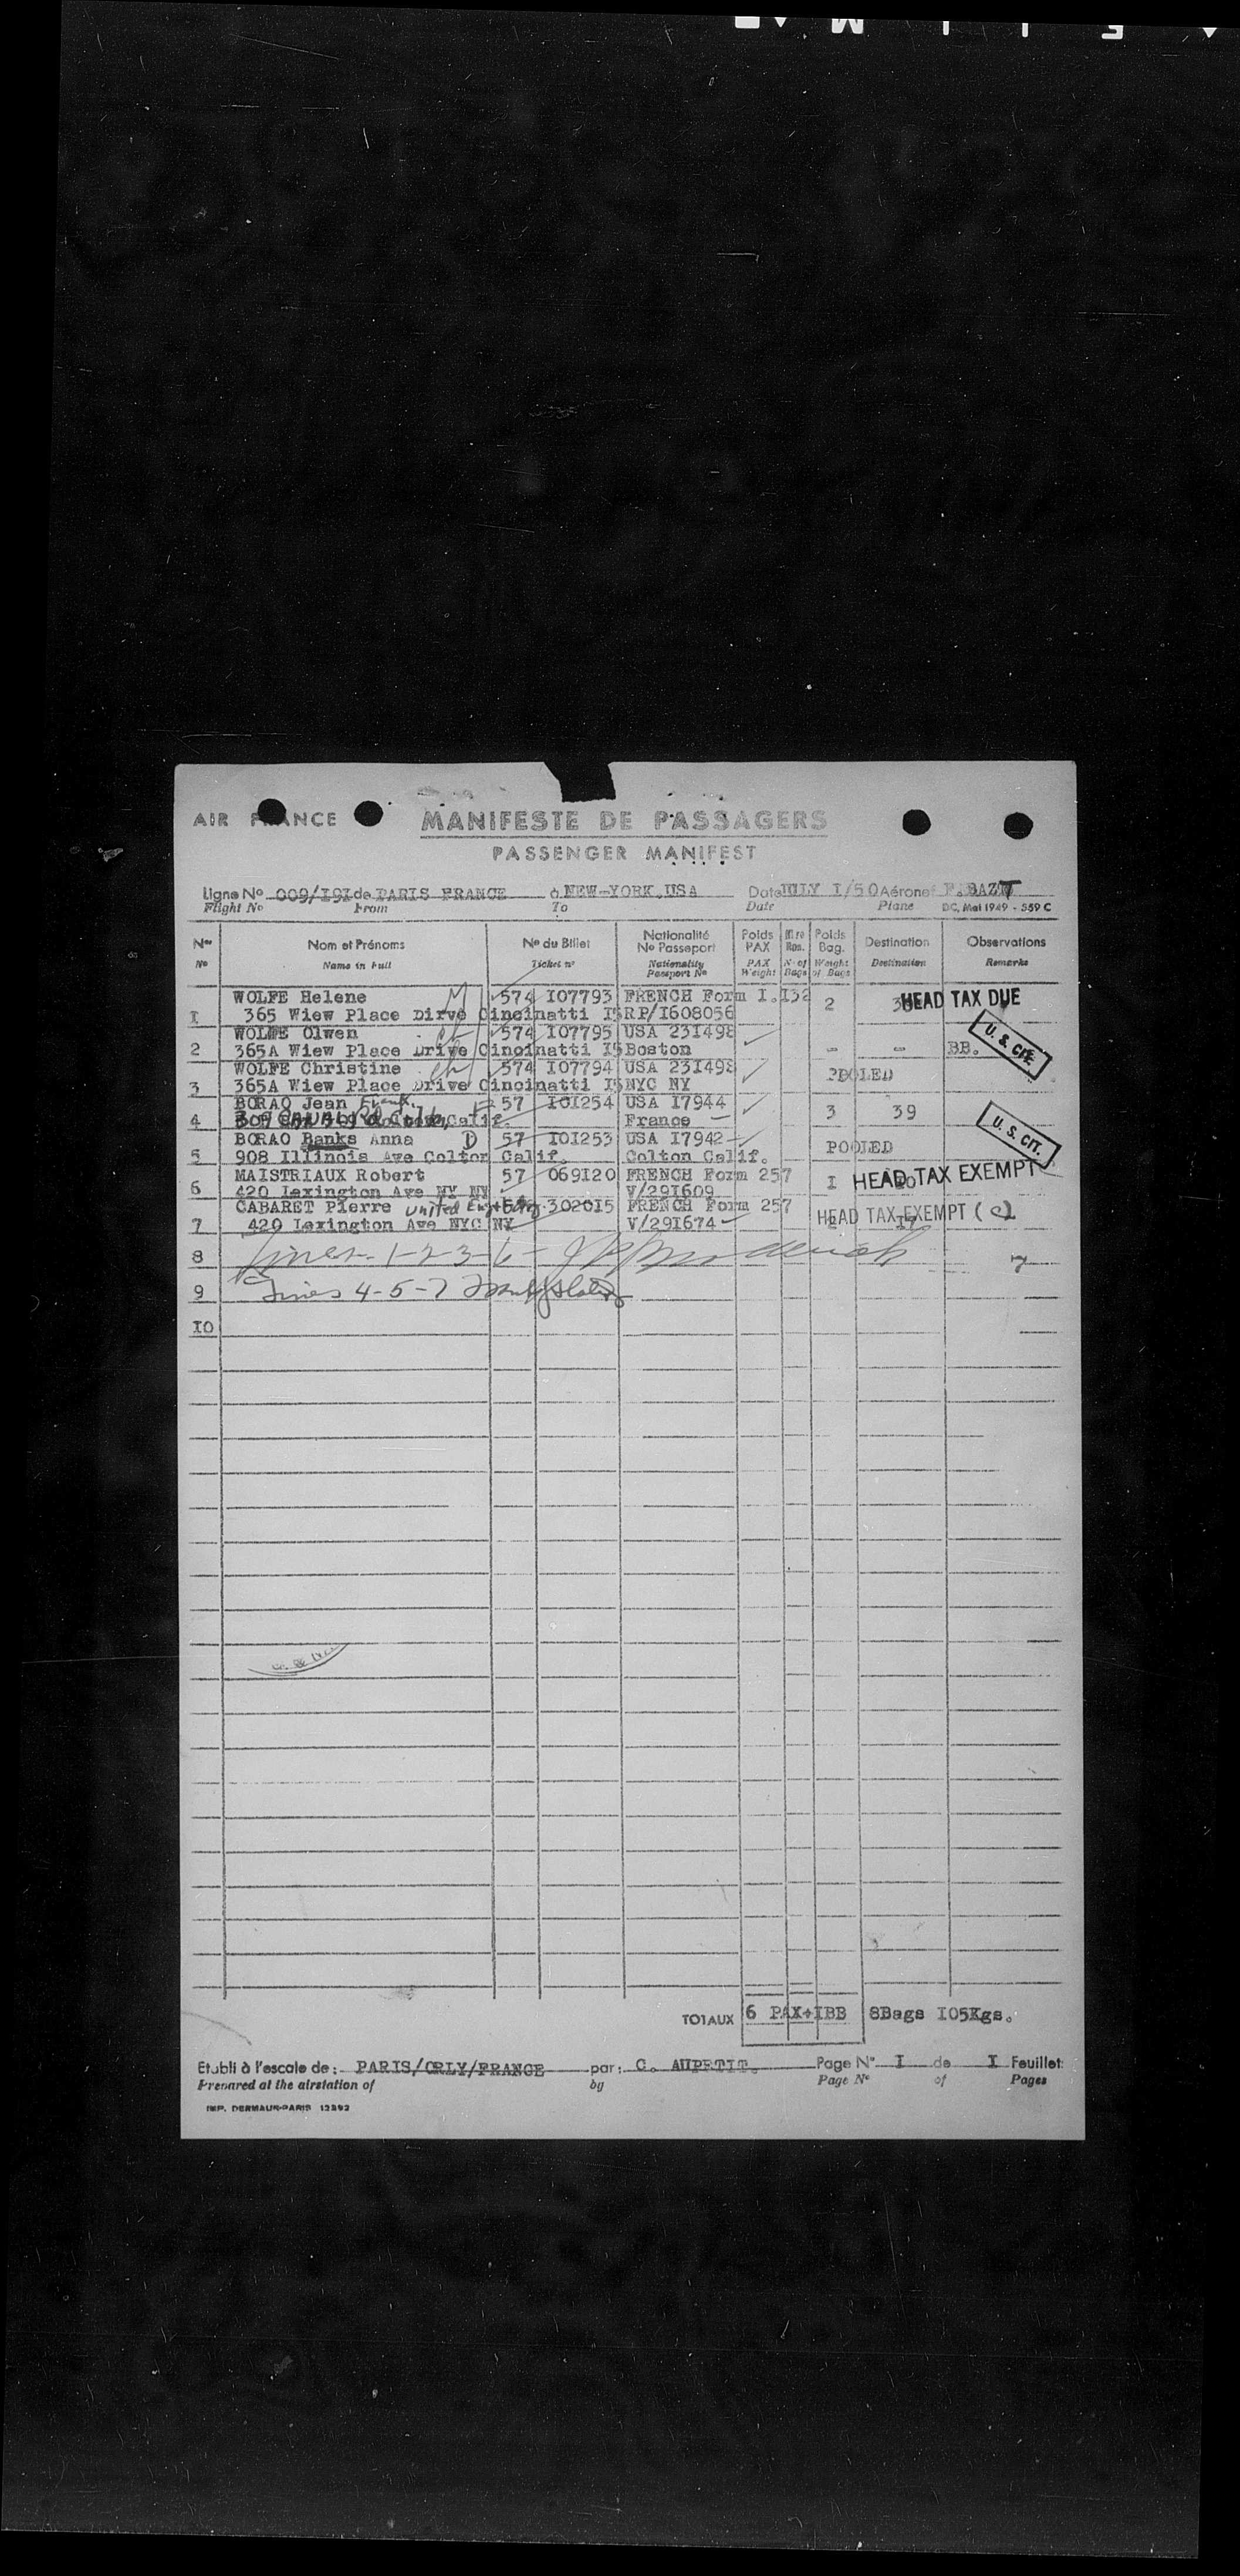 AIR FRANCE
MANIFESTE DE PASSAGERS
PASSENGER MANIFEST
Ligne No 009/191 de PARIS FRANCE à NEW-YORK,USA Date JULY I/50 Aéronef F.BAZT
Flight No From To Date Plane DC, Mai 1949 - 559 C
Nos Nom et Prénoms No du Billet Nationalité No Passeport Poids PAX Bag. Poids Bag. Destination Observations
No Name in Full Ticket no Nationality Passport No PAX Weight N. of Bags Weight of Bags Destination Remarks
WOLFE Helene M 574 I07793 FRENCH Form I.I32 2 HEAD TAX DUE
I 365 Wiew Place Dirve Cincinatti I5 RP/I608056
WOLFE Olwen 574 I07795 USA 23I498 U. S. CIT.
2 365A Wiew Place Drive Cincinatti I5 Boston - - BB.
WOLFE Christine 574 I07794 USA 23I498 POOLED
3 365A Wiew Place Drive Cincinatti I5 NYC NY
BORAO Jean Frank 57 I0I254 USA I7944 3 39
4 Calif. France U. S. CIT.
BORAO Banks Anna D 57 I0I253 USA I7942 POOLED
5 908 Illinois Ave Colton Calif. Colton Calif.
MAISTRIAUX Robert 57 069I20 FRENCH Form 257 I HEAD TAX EXEMPT
6 420 Lexington Ave NY NY V/29I609
CABARET Pierre United 302015 FRENCH Form 257 HEAD TAX EXEMPT (c)
7 420 Lexington Ave NYC NY V/29I674 I7
8 Lines 1-2-3-6- 7
9 Lines 4-5-7
I0
TOTAUX 6 PAX+IBB 8Bags I05Kgs.
Etabli à l'escale de: PARIS/ORLY/FRANCE par: C. AUPETIT. Page No I de I Feuillets
Prepared at the airstation of by Page No of Pages
IMP. DERMAUR-PARIS 12292